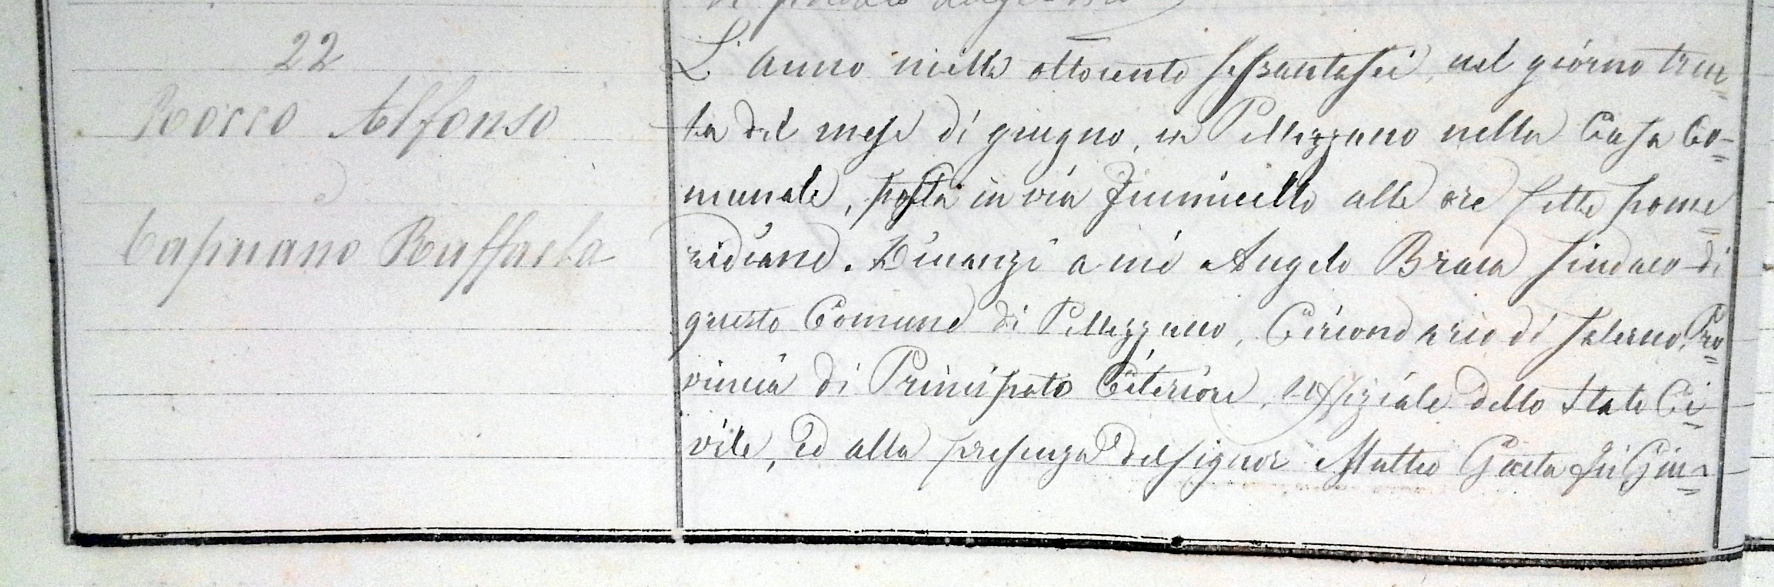 22
Rocco Alfonso
e
Capuano Raffaela
L'anno mille ottocento sessantasei, nel giorno tren=
ta del mese di giugno, in Pellezzano nella Casa Co=
munale, posta in via Fiumicello alle ore sette pome=
ridiane. Dinanzi a me Angelo Braca Sindaco di
questo Comune di Pellezzano, Circondario di Salerno, Pro=
vincia di Principato Citeriore, Uffiziale dello Stato Ci=
vile, ed alla presenza del signor Matteo Gaeta di